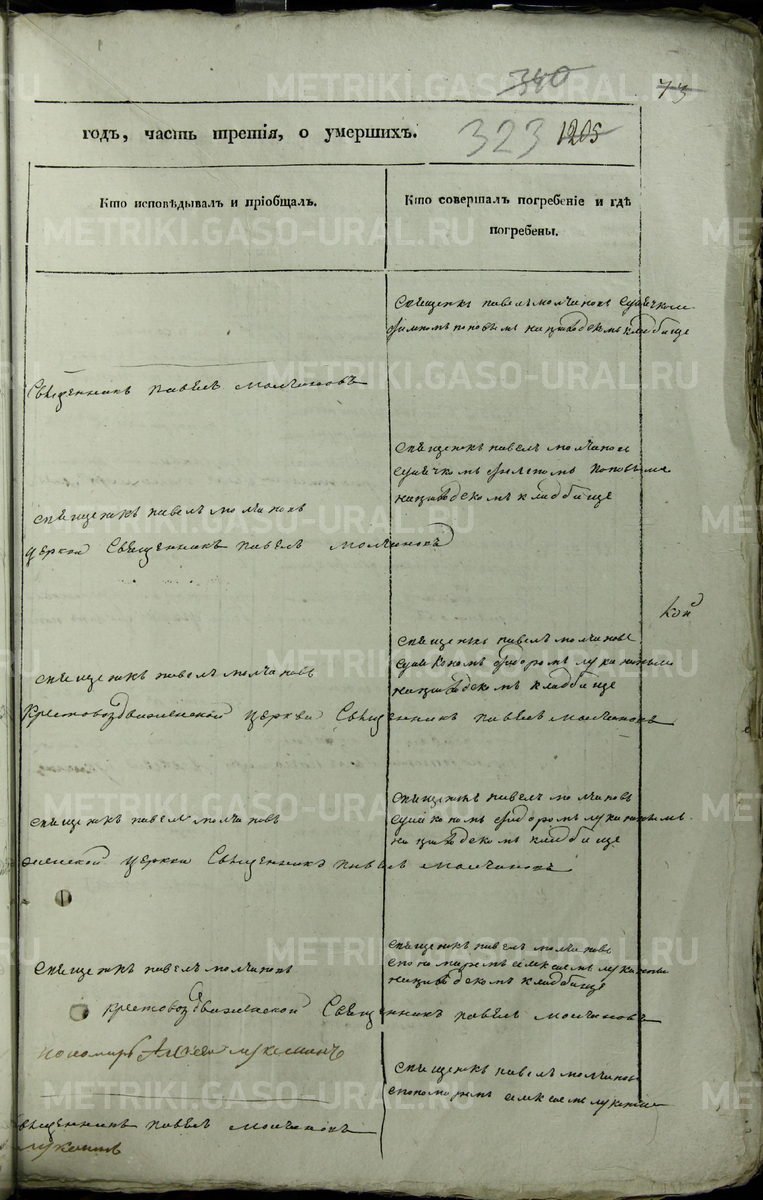 340
73
годъ, часть третія, о умершихъ.
323 1205
Кто исповѣдывалъ и пріобщалъ.
Кто совершалъ погребеніе и гдѣ
погребены.
Священикъ павелъ молчановъ
поповымъ на заводскомъ кладбище
Священникъ павелъ молчановъ
священикъ павелъ молчановъ
поповымъ
на заводскомъ кладбище
священикъ павелъ молчановъ
церкви Священникъ павелъ молчановъ
священикъ павелъ молчановъ
федоромъ лукинымъ
на заводскомъ кладбище
священикъ павелъ молчановъ
Крестовоздвиженской церкви Священникъ павелъ молчановъ
священикъ павелъ молчановъ
федоромъ лукинымъ
на заводскомъ кладбище
священикъ павелъ молчановъ
церкви Священникъ павелъ молчановъ
священикъ павелъ молчановъ
с пономаремъ алексеемъ
на заводскомъ кладбище
священикъ павелъ молчановъ
крестовоздвиженской Священникъ павелъ молчановъ
пономарь
священикъ павелъ молчановъ
с пономаремъ алексеемъ
священникъ павелъ молчановъ
METRIKI.GASO-URAL.RU